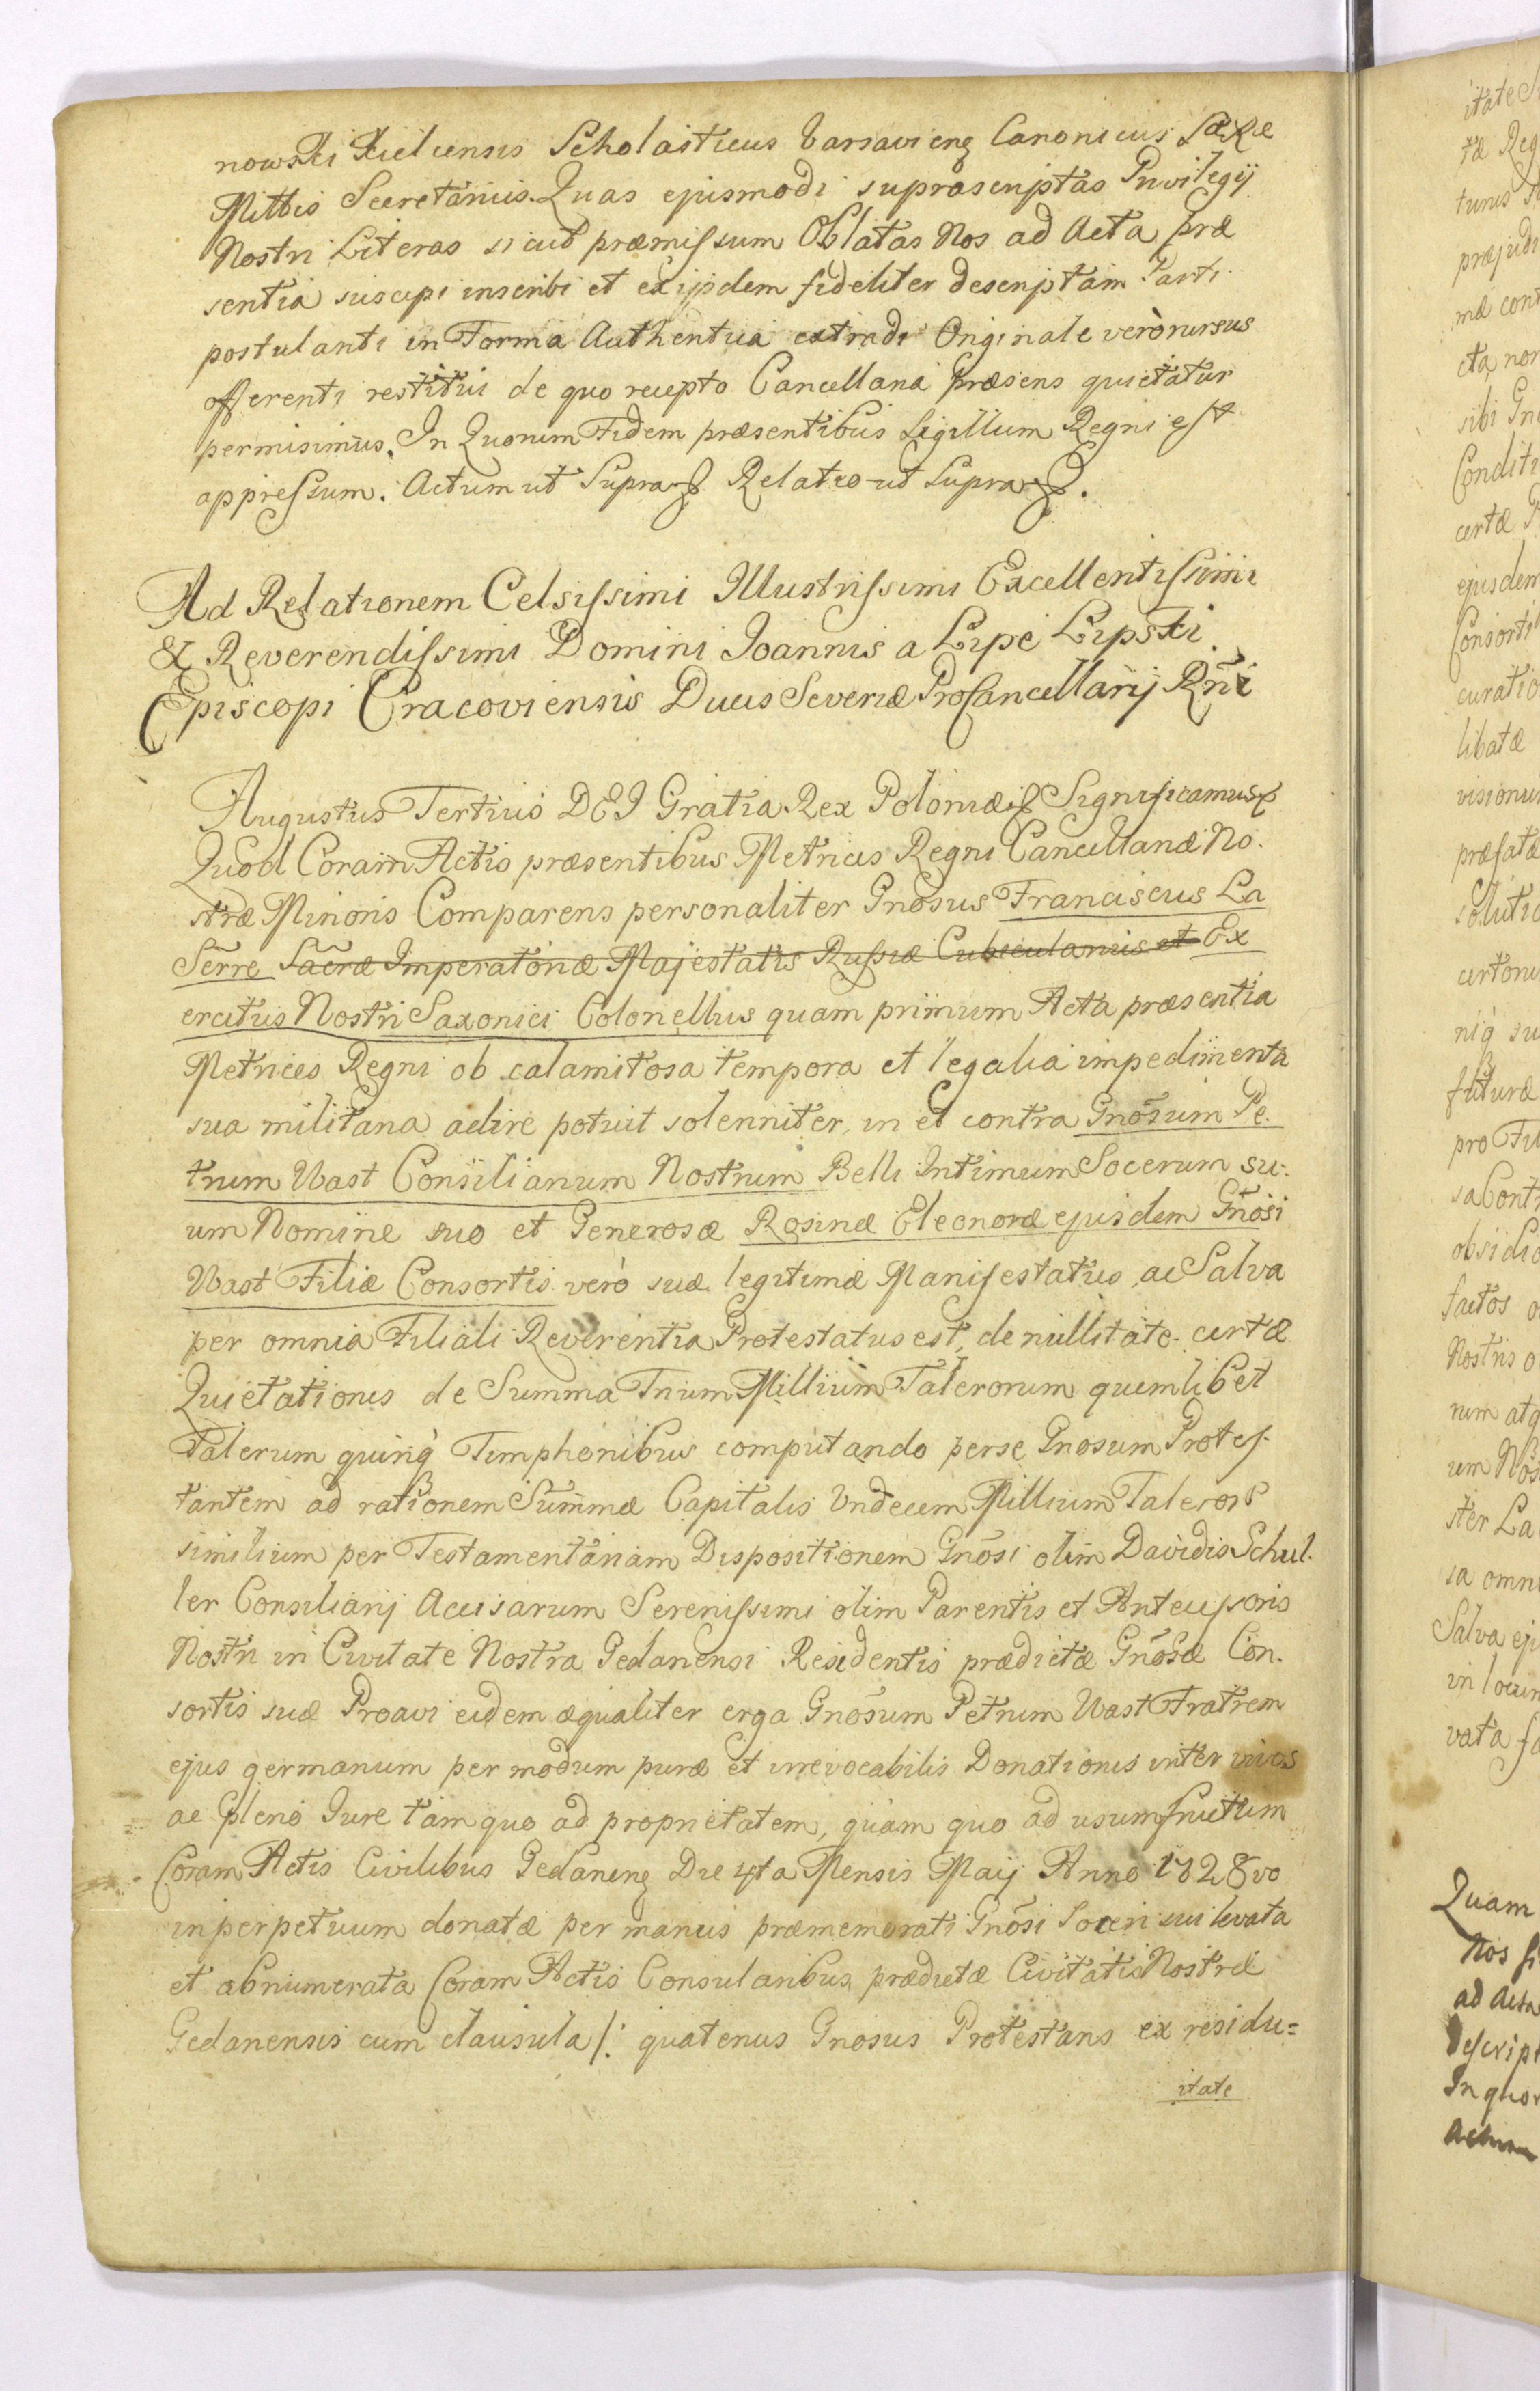 nowski Kielcensis Scholasticus Varsavieng Canonicus SæRæ
Mittis Secretarius. Quas ejusmodi suprascriptas Privilegij
Nostri Literas sicut præmissum Oblatas Nos ad Acta præ
sentia suscipi inscribi et ex ijsdem fideliter descriptam Parti
postulanti in Forma Authentica extradi Originale verò rursus
offerenti restitui de quo recepto Cancellaria præsens quietatur
permisimus. In Quorum Fidem præsentibus Sigillum Regni est
appressum. Actum ut Supra Relatio ut Supra.
Ad Relationem Celsissimi Illustrissimi Excellentissimi
& Reverendissimi Domini Joannis a Lipe Lipski
Episcopi Cracoviensis Ducis Severiæ ProCancellarij Rñi
Augustus Tertius DEI Gratia Rex Poloniæ Significamus
Quod Coram Actis præsentibus Metrices Regni Cancellariæ No.
stræ Minoris Comparens personaliter Gnosus Franciscus La
Serre Sacræ Imperatoriæ Majestatis Russiæ Cubicularius et Ex
ercitus Nostri Saxonici Colonellus quam primum Acta præsentia
Metrices Regni ob calamitosa tempora et legalia impedimenta
sua militaria adire potuit solenniter, in et contra Gnõsum Pe.
trum Uast Consiliarium Nostrum Belli Intimum Socerum su.
um Nomine suo et Generosæ Rosinæ Eleonoræ ejusdem Gñosi
Uast Filiæ Consortis verò suæ legitimæ Manifestatus, ac Salva
per omnia Filiali Reverentia Protestatus est, de nullitate certæ
Quietationis de Summa Trium Millium Talerorum quemlibet
Talerum quinq̀ Timphonibus computando per se Gnosum Protes.
tantem ad rationem Summæ Capitalis Undecem Millium Taleror
similium per Testamentariam Dispositionem Gnõsi olim Davidis Schul.
ler Consiliarij Accisarum Serenissimi olim Parentis et Antecessoris
Nostri in Civitate Nostra Gedanensi Residentis prædictæ Gñosæ Con.
sortis suæ Proavi eidem æqualiter erga Gnõsum Petrum Uast Fratrem
ejus germanum per modum puræ et irrevocabilis Donationis inter vivos
ac pleno Jure tam quo ad proprietatem, quàm quo ad usumfructum
Coram Actis Civilibus Gedaneng Die 4ta Mensis Maij Anno 1728vo
in perpetuum donatæ per manus præmemorati Gnõsi Soceri sui levata
et abnumerata Coram Actis Consularibus prædictæ Civitatis Nostræ
Gedanensis cum clausula /: quatenus Gnosus Protestans ex residu=
itate